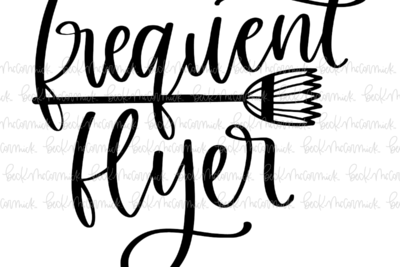 frequent
flyer